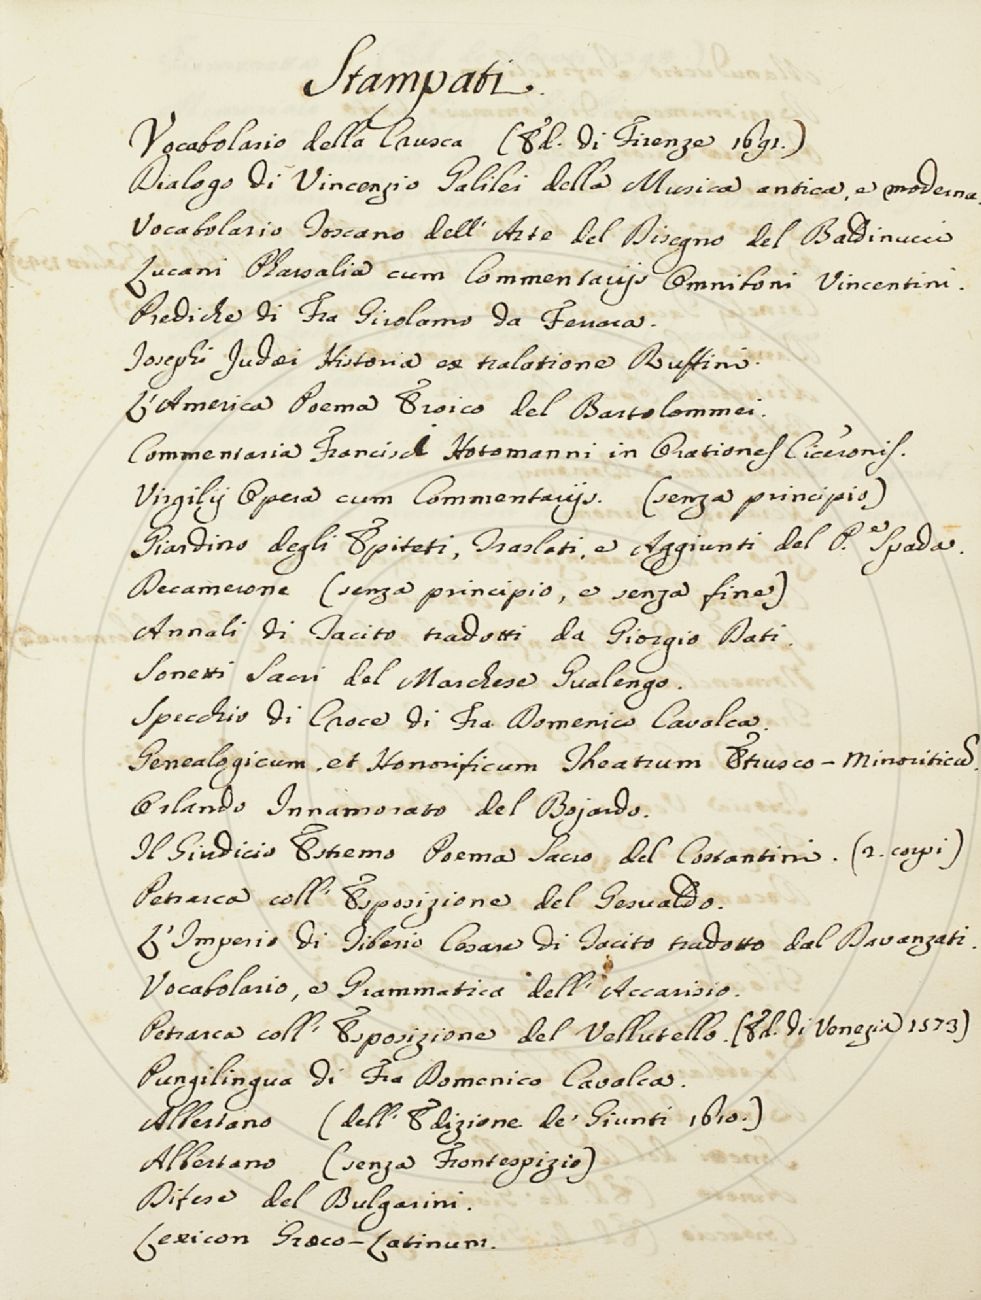 Stampati.
Vocabolario della Crusca (Ed. di Firenze 1691.)
Dialogo di Vincenzio Galilei della Musica antica, e moderna.
Vocabolario Toscano dell' Arte del Disegno del Baldinucci
Lucani Pharsalia cum Commentarijs Omniboni Vincentini.
Prediche di Fra Girolamo da Ferrara.
Josephi Judæi Historia ex tralatione Ruffini.
L'America Poema Eroico del Bartolommei.
Commentaria Francisci Hotomanni in Orationes Ciceronis.
Virgilij Opera cum Commentarijs. (senza principio)
Giardino degli Epiteti, Traslati, e Aggiunti del P.e Spada.
Decamerone (senza principio, e senza fine)
Annali di Tacito tradotti da Giorgio Dati.
Sonetti Sacri del Marchese Gualengo.
Specchio di Croce di Fra Domenico Cavalca.
Genealogicum, et Honorificum Theatrum Etrusco-Minoriticũ.
Orlando Innamorato del Bojardo.
Il Giudicio Estremo Poema Sacro del Costantini. (2. corpi)
Petrarca coll' Esposizione del Gesualdo.
L'Imperio di Tiberio Cesare di Tacito tradotto dal Davanzati.
Vocabolario, e Grammatica dell' Accarisio.
Petrarca coll' Esposizione del Vellutello. (Ed. di Venezia 1573)
Pungilingua di Fra Domenico Cavalca.
Albertano (dell' Edizione de' Giunti 1610.)
Albertano (senza Frontespizio)
Difese del Bulgarini.
Lexicon Græco-Latinum.